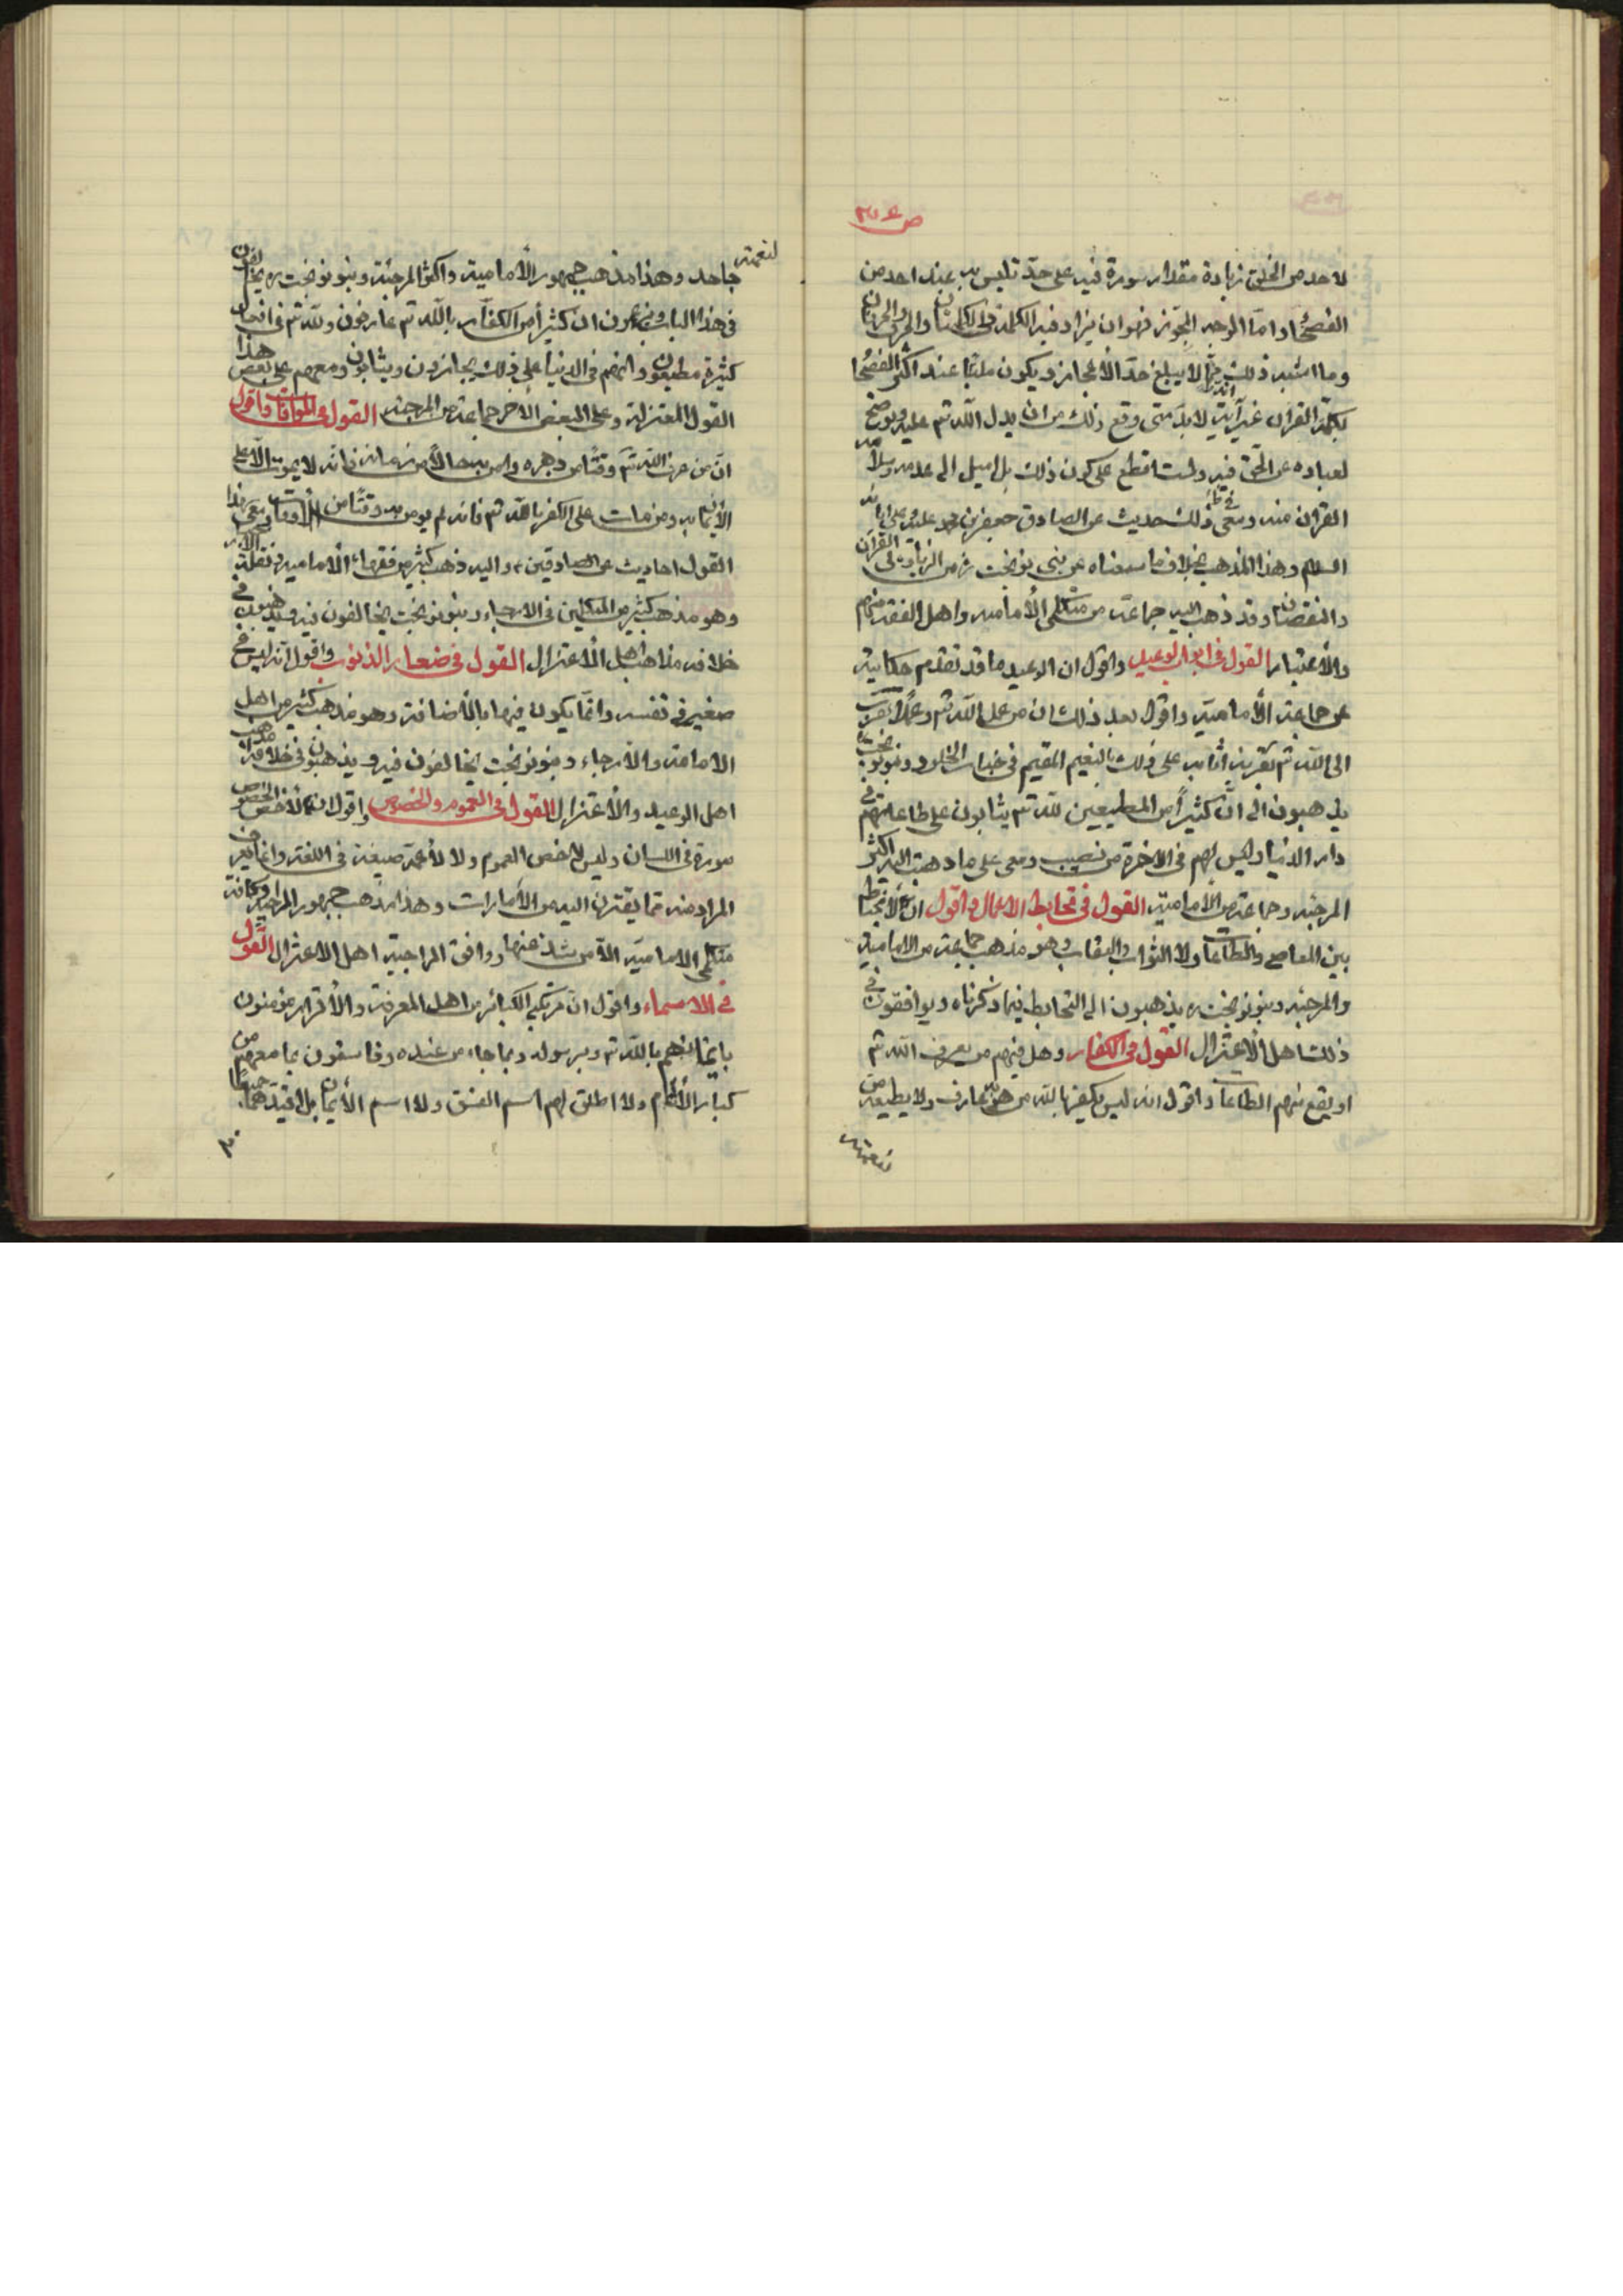 لاحد من الخلق زيادة مقدار سورة فيه على حدّ تلبس به عند احد من
الفصحاء واما الوجه المجوّز فهو ان يزاد فيه الكلمة والكلمتان والحرف والحرفان
وما اشبه ذلك مما لا يبلغ حدّ الاعجاز ويكون ملتبسا عند اكثر الفصحا
بكلم القرآن غير انه لا بدّ متى وقع ذلك من ان يدل الله تم عليه ويوضح
لعباده عن الحق فيه ولست اقطع على كون ذلك بل اميل الى عدمه وسلامة
القرآن منه ومعى في ذلك حديث عن الصادق جعفر بن محمد عليه
السلم وهذا المذهب بخلاف ما سمعناه عن بنى نوبخت ره من الزيادة في القرآن
والنقصان وقد ذهب اليه جماعة من متكلمى الأماميه واهل الفقه منهم
والأعتبار القول في ابواب الوعيد واقول ان الوعيد ما قد تقدم حكايته
عن جماعة الأماميّه واقول بعد ذلك ان من عمل لله تم عملاً وتقرّب
الى الله تم بقربة اثابه على ذلك بالنعيم المقيم في جنات الخلود وبنو نوبخت ره
يذهبون الى انّ كثيراً من المطيعين لله تم يثابون على طاعاتهم في
دار الدنيا وليس لهم في الاخرة من نصيب ومعى على ما ذهبت اليه اكثر
المرجئه وجماعة من الاماميّه القول في تحابط الاعمال واقول انه لا تحابط
بين المعاصى والطاعات ولا الثواب والعقاب وهو مذهب جماعة من الامامية
والمرجئه وبنو نوبخت ره يذهبون الى التحابط فيما ذكرناه ويوافقون في
ذلك اهل الأعتزال القول في الكفار وهل فيهم من يعرف الله تم
او يقع منهم الطاعات واقول انه ليس يكفر بالله من هو به عارف ولا يطيعه من
لنعمته
لنعمته جاحد وهذا مذهب جمهور الأمامية واكثر المرجئة وبنو نوبخت ره يخالفون
في هذا الباب ويزعمون ان كثيراً من الكفار بالله تم عارفون ولله تم في افعال
كثيرة مطيعون وانهم في الدنيا على ذلك يجازون ويثابون ومعهم على بعض هذا
القول المعتزلة وعلى البعض الأخر جماعة من المرجئه القول في الموافات واقول
ان من عرف الله تم وقتاً من دهره وامن به حالاً من زمانه فانه لا يموت الّا على
الأيمان به ومن مات على الكفر بالله تم فانه لم يومن به وقتاً من الأوقات ومعى بهذا
القول احاديث عن الصادقين ع واليه ذهب كثير من فقهاء الأماميه ونقلة الاثار
وهو مذهب كثير من المتكلمين في الارجاء وبنو نوبخت يخالفون فيه ويذهبون في
خلافه مذاهب اهل الأعتزال القول في صغاير الذنوب واقول انه ليس فيها
صغير في نفسه وانما يكون فيها بالأضافة وهو مذهب كثير من اهل
الامامة والأرجاء وبنو نوبخت يخالفون فيه ويذهبون في خلافه مذاهب
اهل الوعيد والأعتزال القول في العموم والخصوص واقول ان لأخص الخصوص
صورة في اللسان وليس لأخص العموم ولا لأعمه صيغة في اللغة وانما يعرف
المراد منه بما يقترن اليه من الأمارات وهذا مذهب جمهور المراجئه وكافة
متكلمى الاماميّه الّا من شذ عنها ووافق المراجية اهل الاعتزال القول
في الاسماء واقول ان مرتكبى الكبائر من اهل المعرفة والأقرار مؤمنون
بايمانهم بالله تم وبرسوله وبما جاء من عنده وفاسقون بما معهم من
كبائر الأثام ولا اطلق لهم اسم الفسق ولا اسم الأيمان بل اقيدهما جميعاً